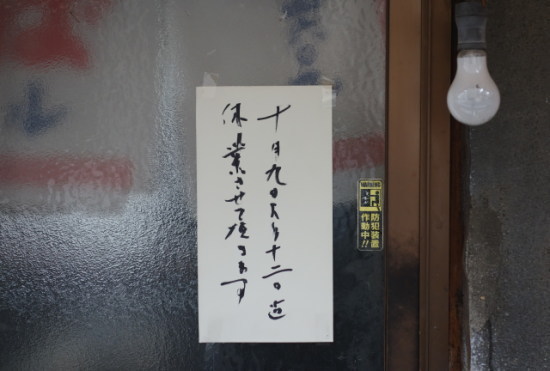 十月九日より十二日迄
休業させて頂きます
防犯装置
作動中!!